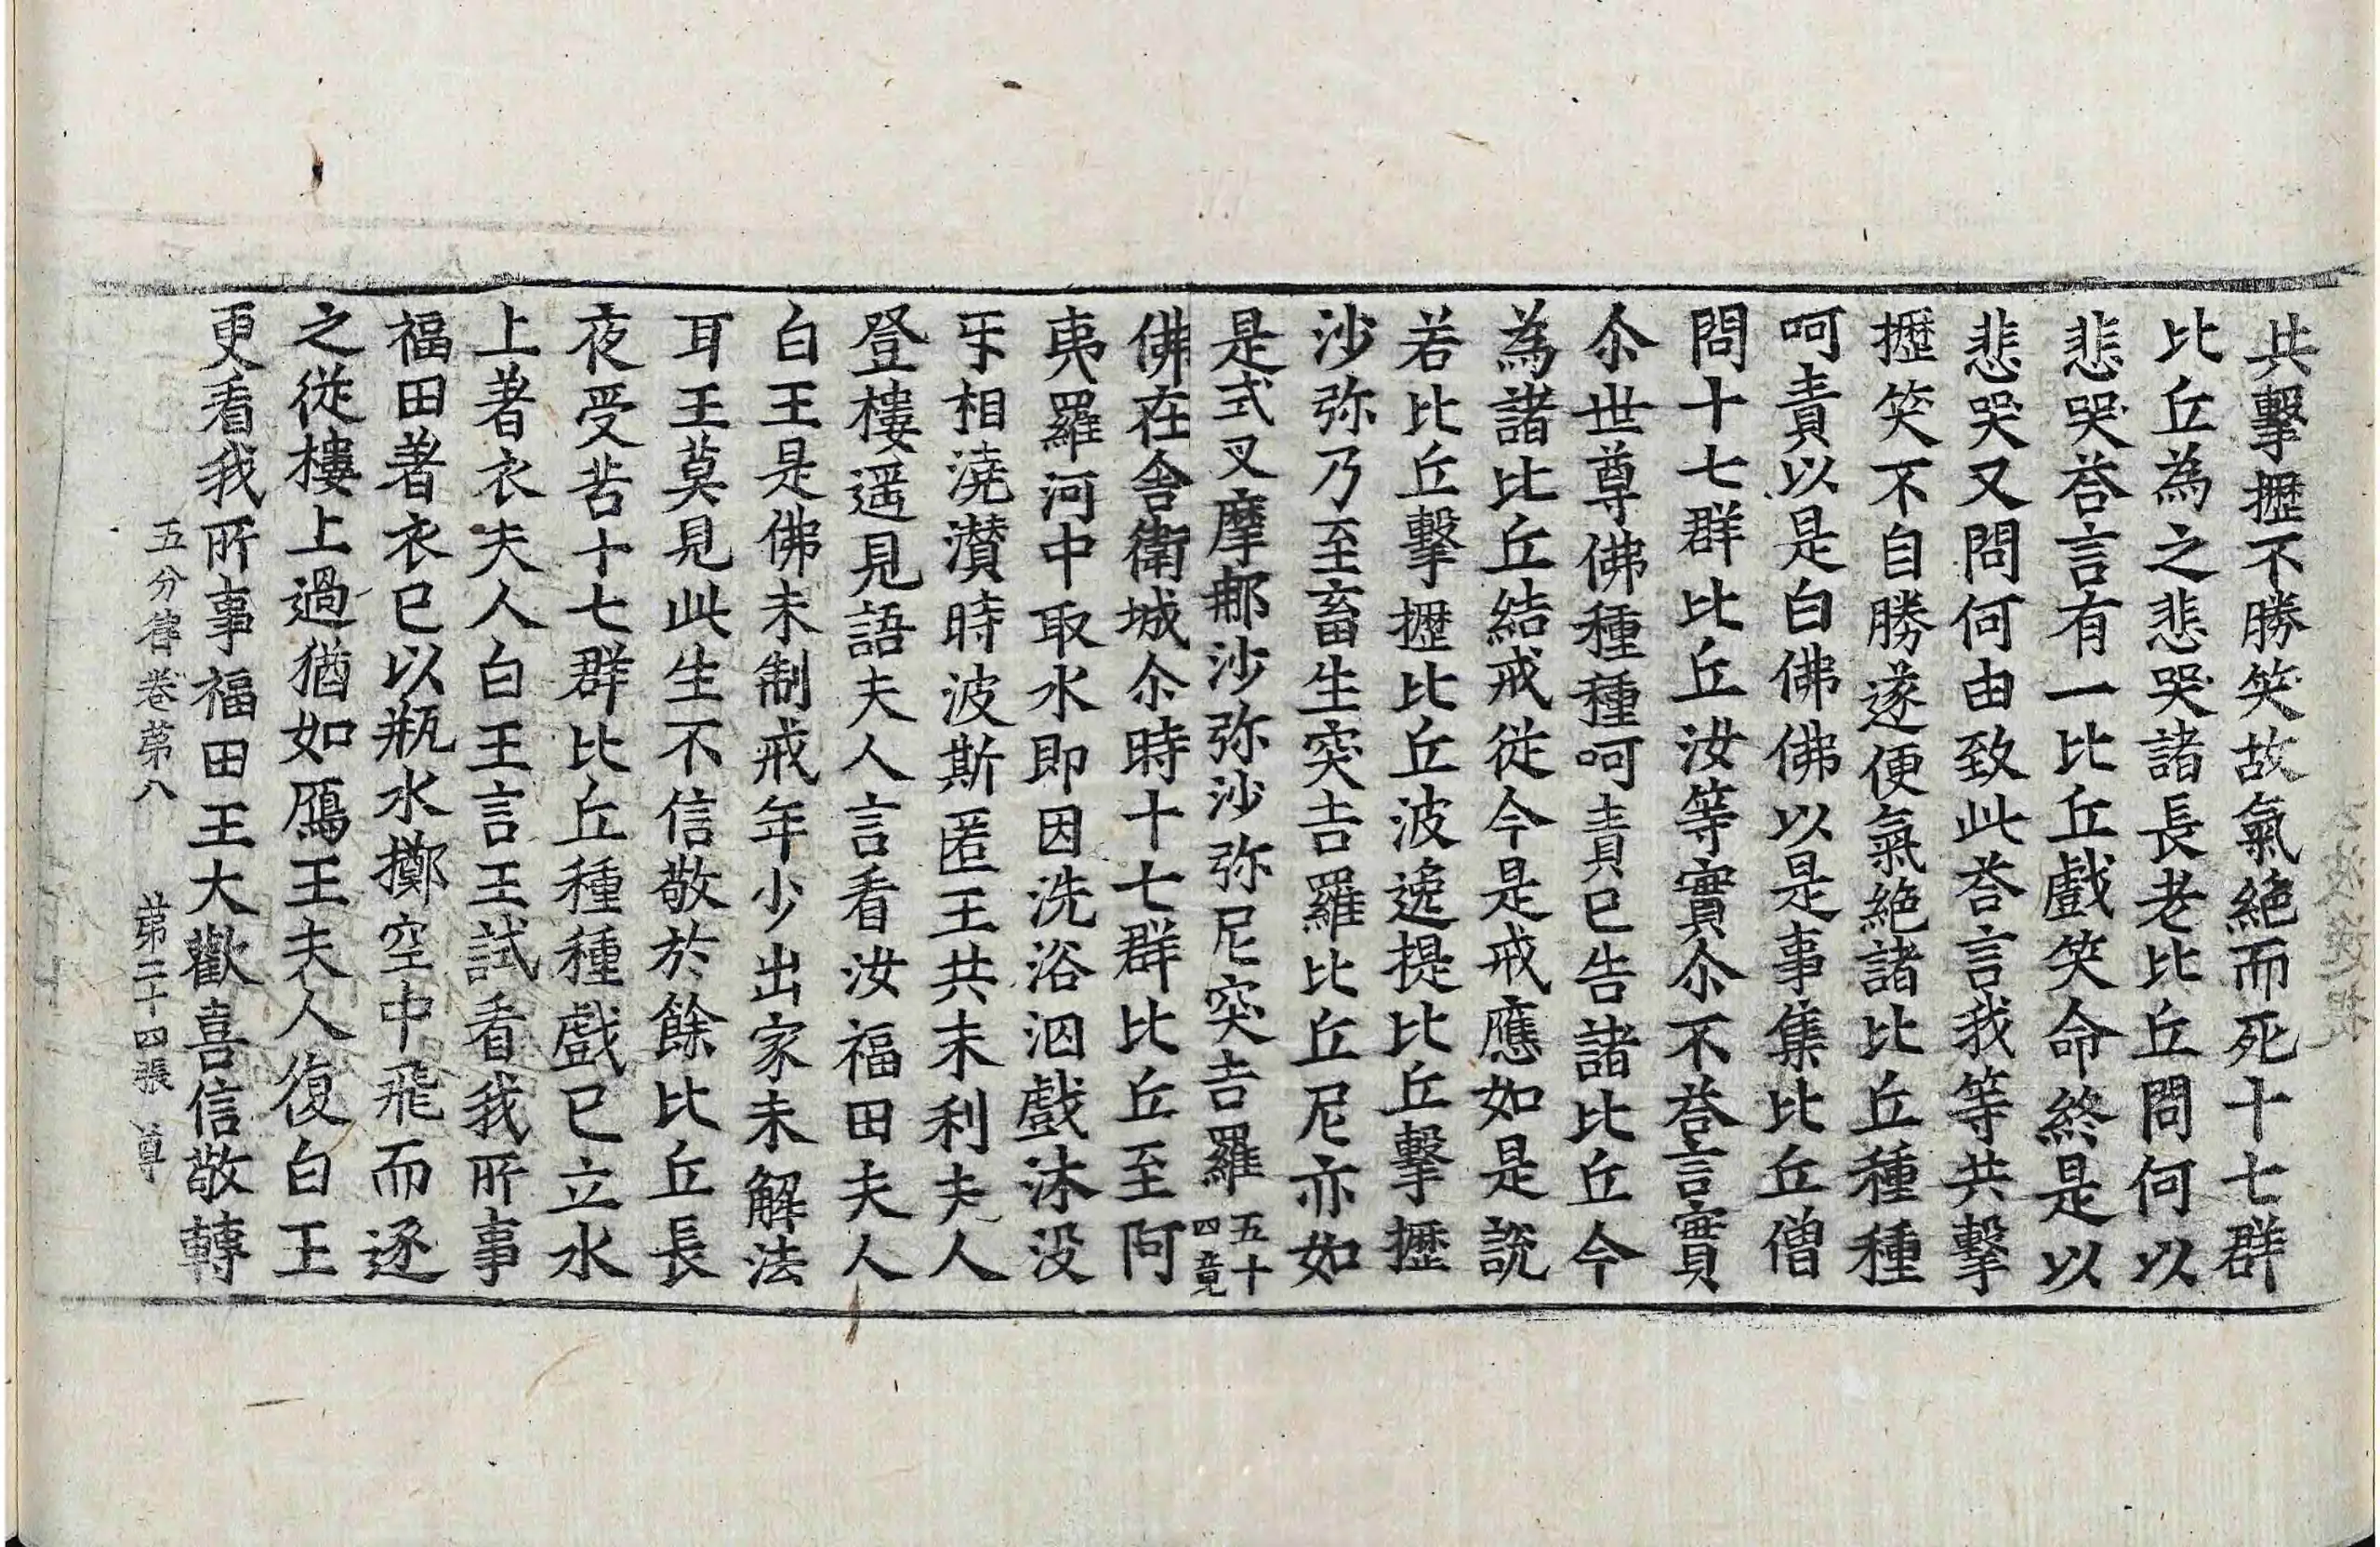 共擊攊不勝笑故氣絶而死十七群
比丘為之悲哭諸長老比丘問何以
悲哭荅言有一比丘戲笑命終是以
悲哭又問何由致此荅言我等共擊
攊笑不自勝遂便氣絶諸比丘種種
呵責以是白佛佛以是事集比丘僧
問十七群比丘汝等實尒不荅言實
尒世尊佛種種呵責已告諸比丘今
為諸比丘結戒從今是戒應如是說
若比丘擊攊比丘波逸提比丘擊攊
沙弥乃至畜生突吉羅比丘尼亦如
是式叉摩那沙弥沙弥尼突吉羅五十四竟
佛在舍衛城尒時十七群比丘至阿
夷羅河中取水即因洗浴泅戲沐没
㸦相澆灒時波斯匿王共末利夫人
登樓遥見語夫人言看汝福田夫人
白王是佛未制戒年少出家未解法
耳王莫見此生不信敬於餘比丘長
夜受苦十七群比丘種種戲已立水
上著衣夫人白王言王試看我所事
福田著衣已以瓶水擲空中飛而逐
之從樓上過猶如鴈王夫人復白王
更看我所事福田王大歡喜信敬轉
五分律卷第八　第二十四張　尊